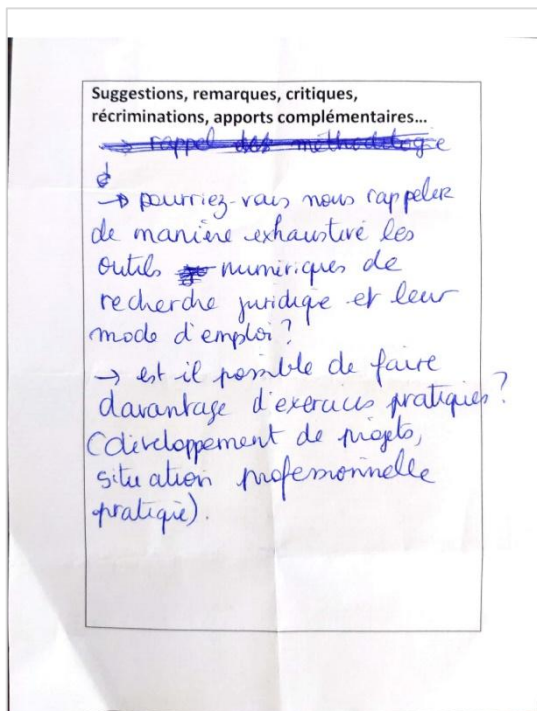 Suggestions, remarques, critiques,
récriminations, apports complémentaires...
→ rappel des méthodologie
→ pourriez-vous nous rappeler
de manière exhaustive les
outils numériques de
recherche juridique et leur
mode d'emploi ?
→ est il possible de faire
davantage d'exercices pratiques ?
(développement de projets,
situation professionnelle
pratique).